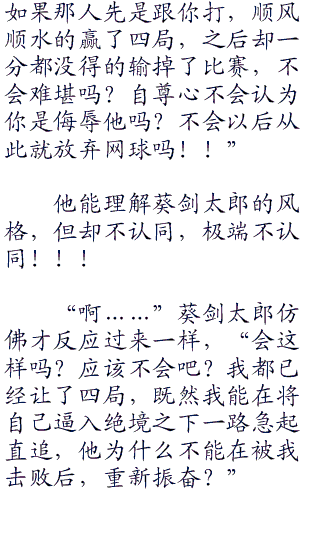 如果那人先是跟你打，顺风
顺水的赢了四局，之后却一
分都没得的输掉了比赛，不
会难堪吗？自尊心不会认为
你是侮辱他吗？不会以后从
此就放弃网球吗！！”
他能理解葵剑太郎的风
格，但却不认同，极端不认
同！！！
“啊……”葵剑太郎仿
佛才反应过来一样，“会这
样吗？应该不会吧？我都已
经让了四局，既然我能在将
自己逼入绝境之下一路急起
直追，他为什么不能在被我
击败后，重新振奋？”